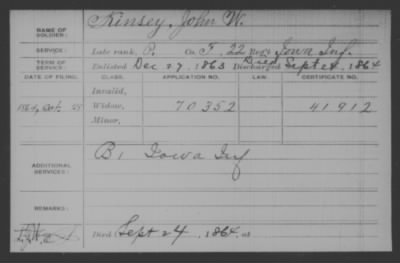 NAME OF SOLDIER: Kinsey, John W.
SERVICE: Late rank, P. Co. F, 22 Reg't Iowa Inf.
TERM OF SERVICE: Enlisted Dec 27, 1863 Discharged Died Sept 24, 1864
DATE OF FILING. CLASS. APPLICATION NO. LAW. CERTIFICATE NO.
Invalid,
1864, Oct. 25 Widow, 70352 41912
Minor,
ADDITIONAL SERVICES: B 1 Iowa Inf
REMARKS:
Died Sept 24, 1864, at